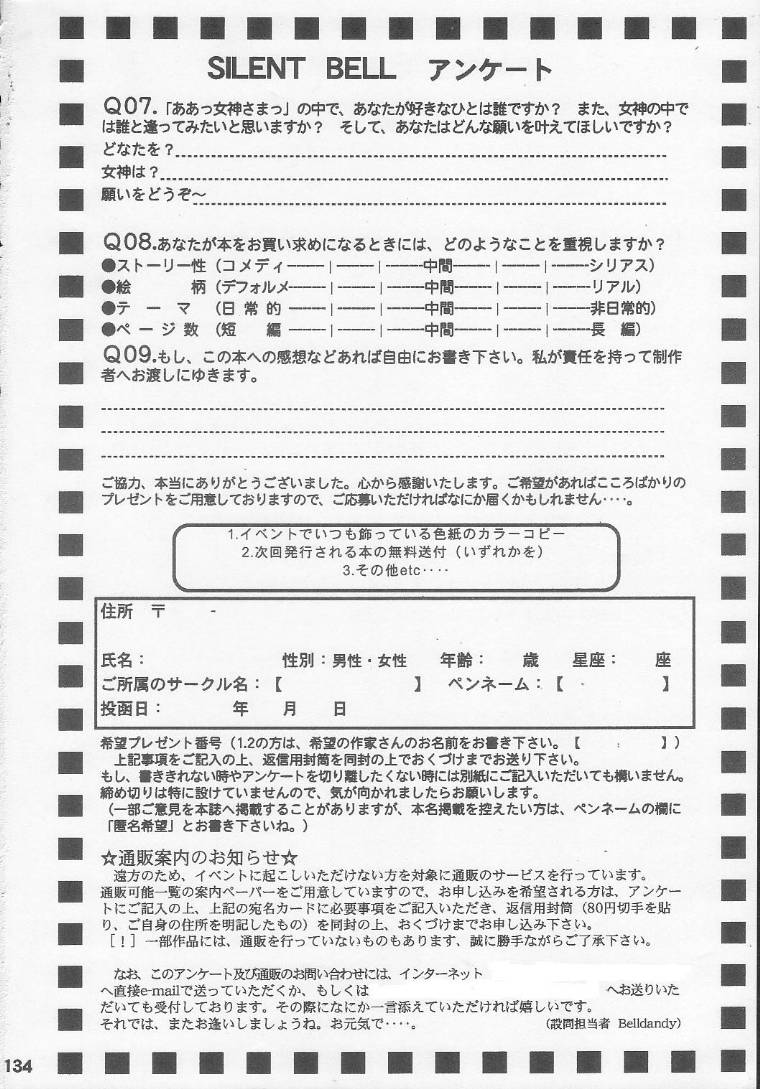 SILENT BELL アンケート
Q07.「ああっ女神さまっ」の中で、あなたが好きなひとは誰ですか？　また、女神の中で
は誰と逢ってみたいと思いますか？　そして、あなたはどんな願いを叶えてほしいですか？
どなたを？
女神は？
願いをどうぞ～
Q08.あなたが本をお買い求めになるときには、どのようなことを重視しますか？
●ストーリー性（コメディ―――|―――|―――中間―――|―――|―――シリアス）
●絵　　　　柄（デフォルメ―――|―――|―――中間―――|―――|―――リアル）
●テ　ー　マ　（日 常 的 ―――|―――|―――中間―――|―――|―――非日常的）
●ペ ー ジ 数 （短　　編 ―――|―――|―――中間―――|―――|―――長　編）
Q09.もし、この本への感想などあれば自由にお書き下さい。私が責任を持って制作
者へお渡しにゆきます。
ご協力、本当にありがとうございました。心から感謝いたします。ご希望があればこころばかりの
プレゼントをご用意しておりますので、ご応募いただければなにか届くかもしれません‥‥。
1.イベントでいつも飾っている色紙のカラーコピー
2.次回発行される本の無料送付（いずれかを）
3.その他etc‥‥
住所　〒　　　-
氏名：　　　　　　　　性別：男性・女性　　年齢：　　歳　　星座：　　座
ご所属のサークル名：【　　　　　　　　】　ペンネーム：【　　　　　　】
投函日：　　　　年　　月　　日
希望プレゼント番号（1.2の方は、希望の作家さんのお名前をお書き下さい。【　　：　　】）
　上記事項をご記入の上、返信用封筒を同封の上でおくづけまでお送り下さい。
もし、書ききれない時やアンケートを切り離したくない時には別紙にご記入いただいても構いません。
締め切りは特に設けていませんので、気が向かれましたらお願いします。
（一部ご意見を本誌へ掲載することがありますが、本名掲載を控えたい方は、ペンネームの欄に
「匿名希望」とお書き下さいね。）
☆通販案内のお知らせ☆
　遠方のため、イベントに起こしいただけない方を対象に通販のサービスを行っています。
通販可能一覧の案内ペーパーをご用意していますので、お申し込みを希望される方は、アンケー
トにご記入の上、上記の宛名カードに必要事項をご記入いただき、返信用封筒（80円切手を貼
り、ご自身の住所を明記したもの）を同封の上、おくづけまでお申し込み下さい。
［！］一部作品には、通販を行っていないものもあります、誠に勝手ながらご了承下さい。
　なお、このアンケート及び通販のお問い合わせには、インターネット
へ直接e-mailで送っていただくか、もしくは　　　　　　　　　　　　へお送りいた
だいても受付しております。その際になにか一言添えていただければ嬉しいです。
それでは、またお逢いしましょうね。お元気で‥‥。　　　　　　（設問担当者 Belldandy）
134